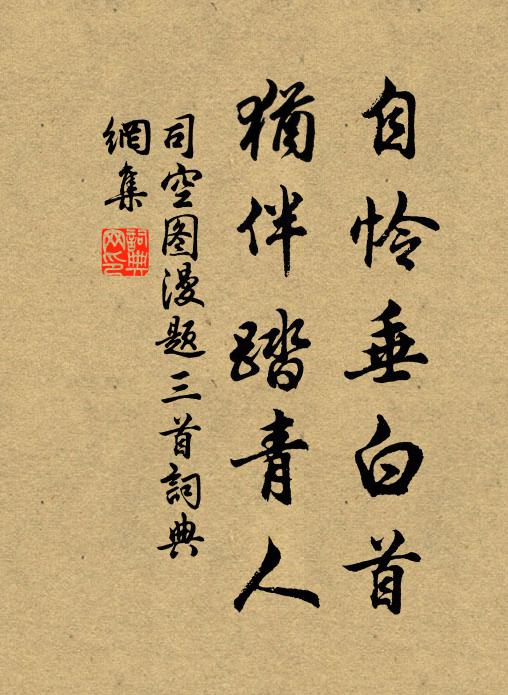 自怜垂白首
猶伴踏青人
司空图漫题三首詞典
網集
詞典
网印